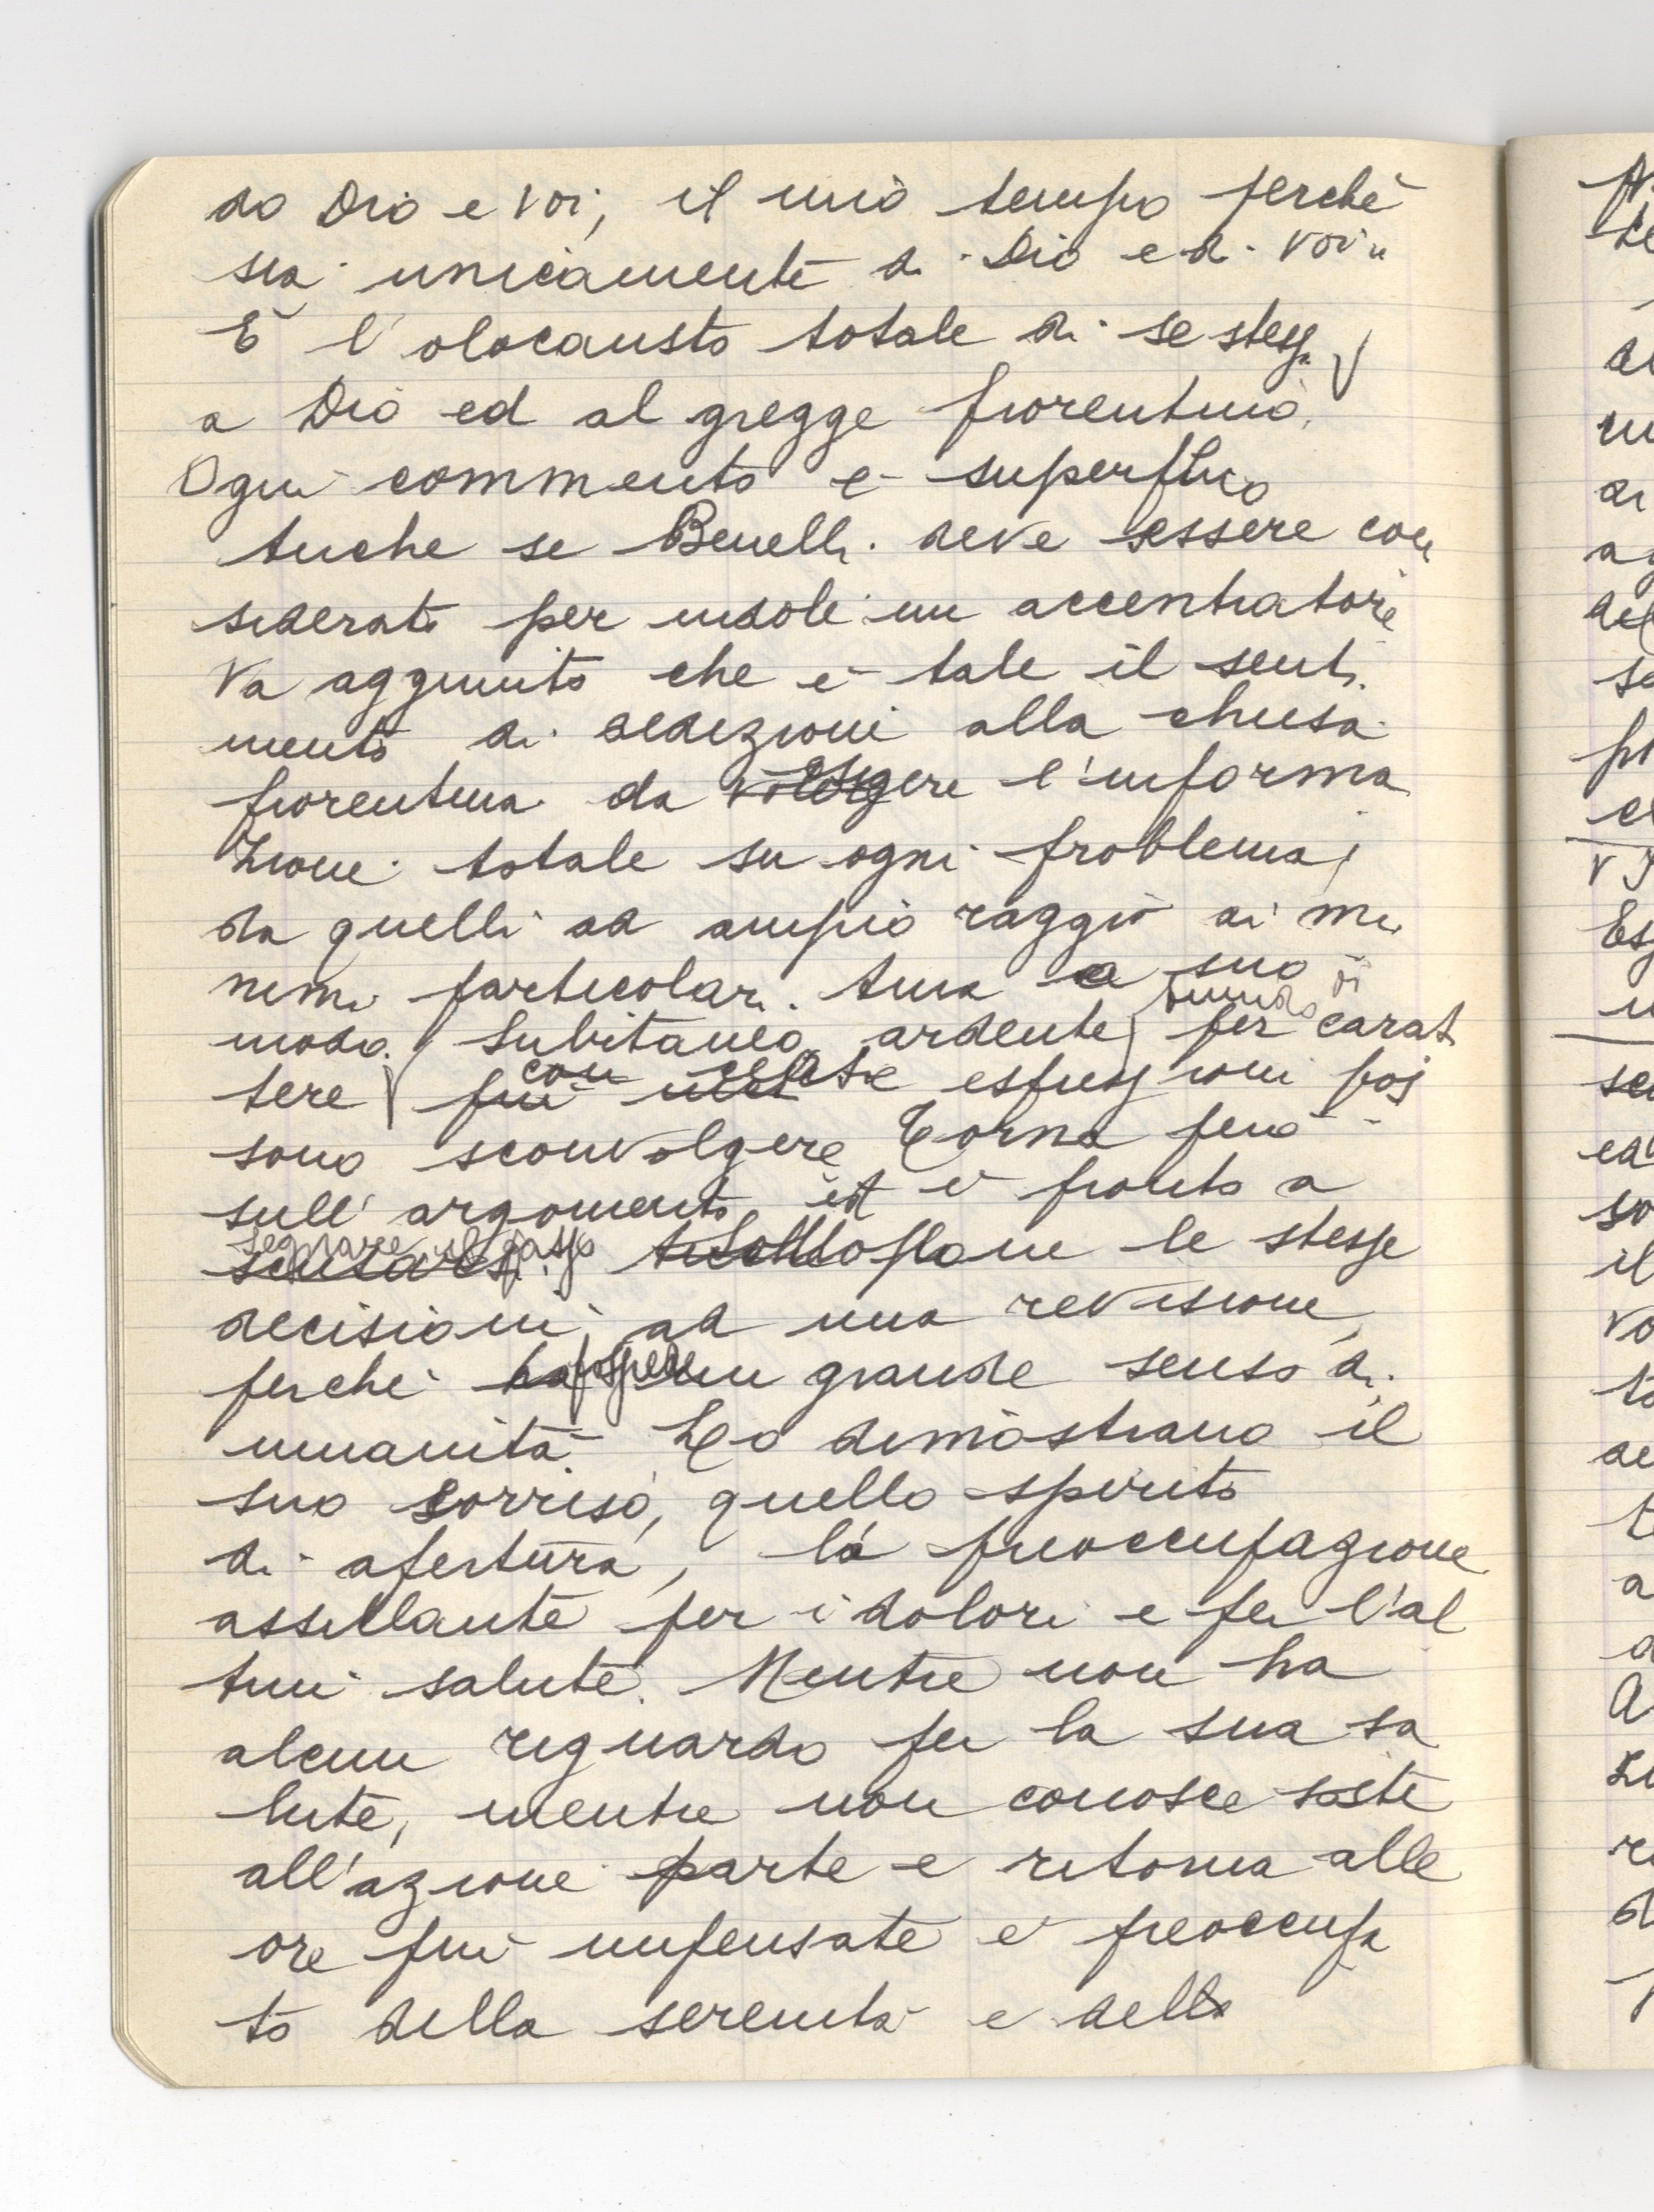 do Dio e voi, il mio tempo perchè
sia unicamente di Dio e di voi"
È l'olocausto totale di se stessi
a Dio ed al gregge fiorentino.
Ogni commento è superfluo
Anche se Benelli deve essere con
siderato per indole un accentratore
Va aggiunto che è tale il senti
mento di dedizione alla chiesa
fiorentina da esigere l'informa
zione totale su ogni problema,
da quelli ad ampio raggio ai mi
nimi particolari. Ama a suo
modo. Subitaneo, ardente, per carat
tere con certe espressioni pos
sono sconvolgere Torna però
sull'argomento, ed è pronto a
segnare il passo
decisioni, ad una revisione,
perchè possiede un grande senso di
umanità. Lo dimostrano il
suo sorriso, quello spirito
di apertura, la preoccupazione
assillante per i dolori e per l'al
trui salute. Mentre non ha
alcun riguardo per la sua sa
lute, mentre non conosce soste
all'azione parte e ritorna alle
ore più impensate è preoccupa
to della serenità e della